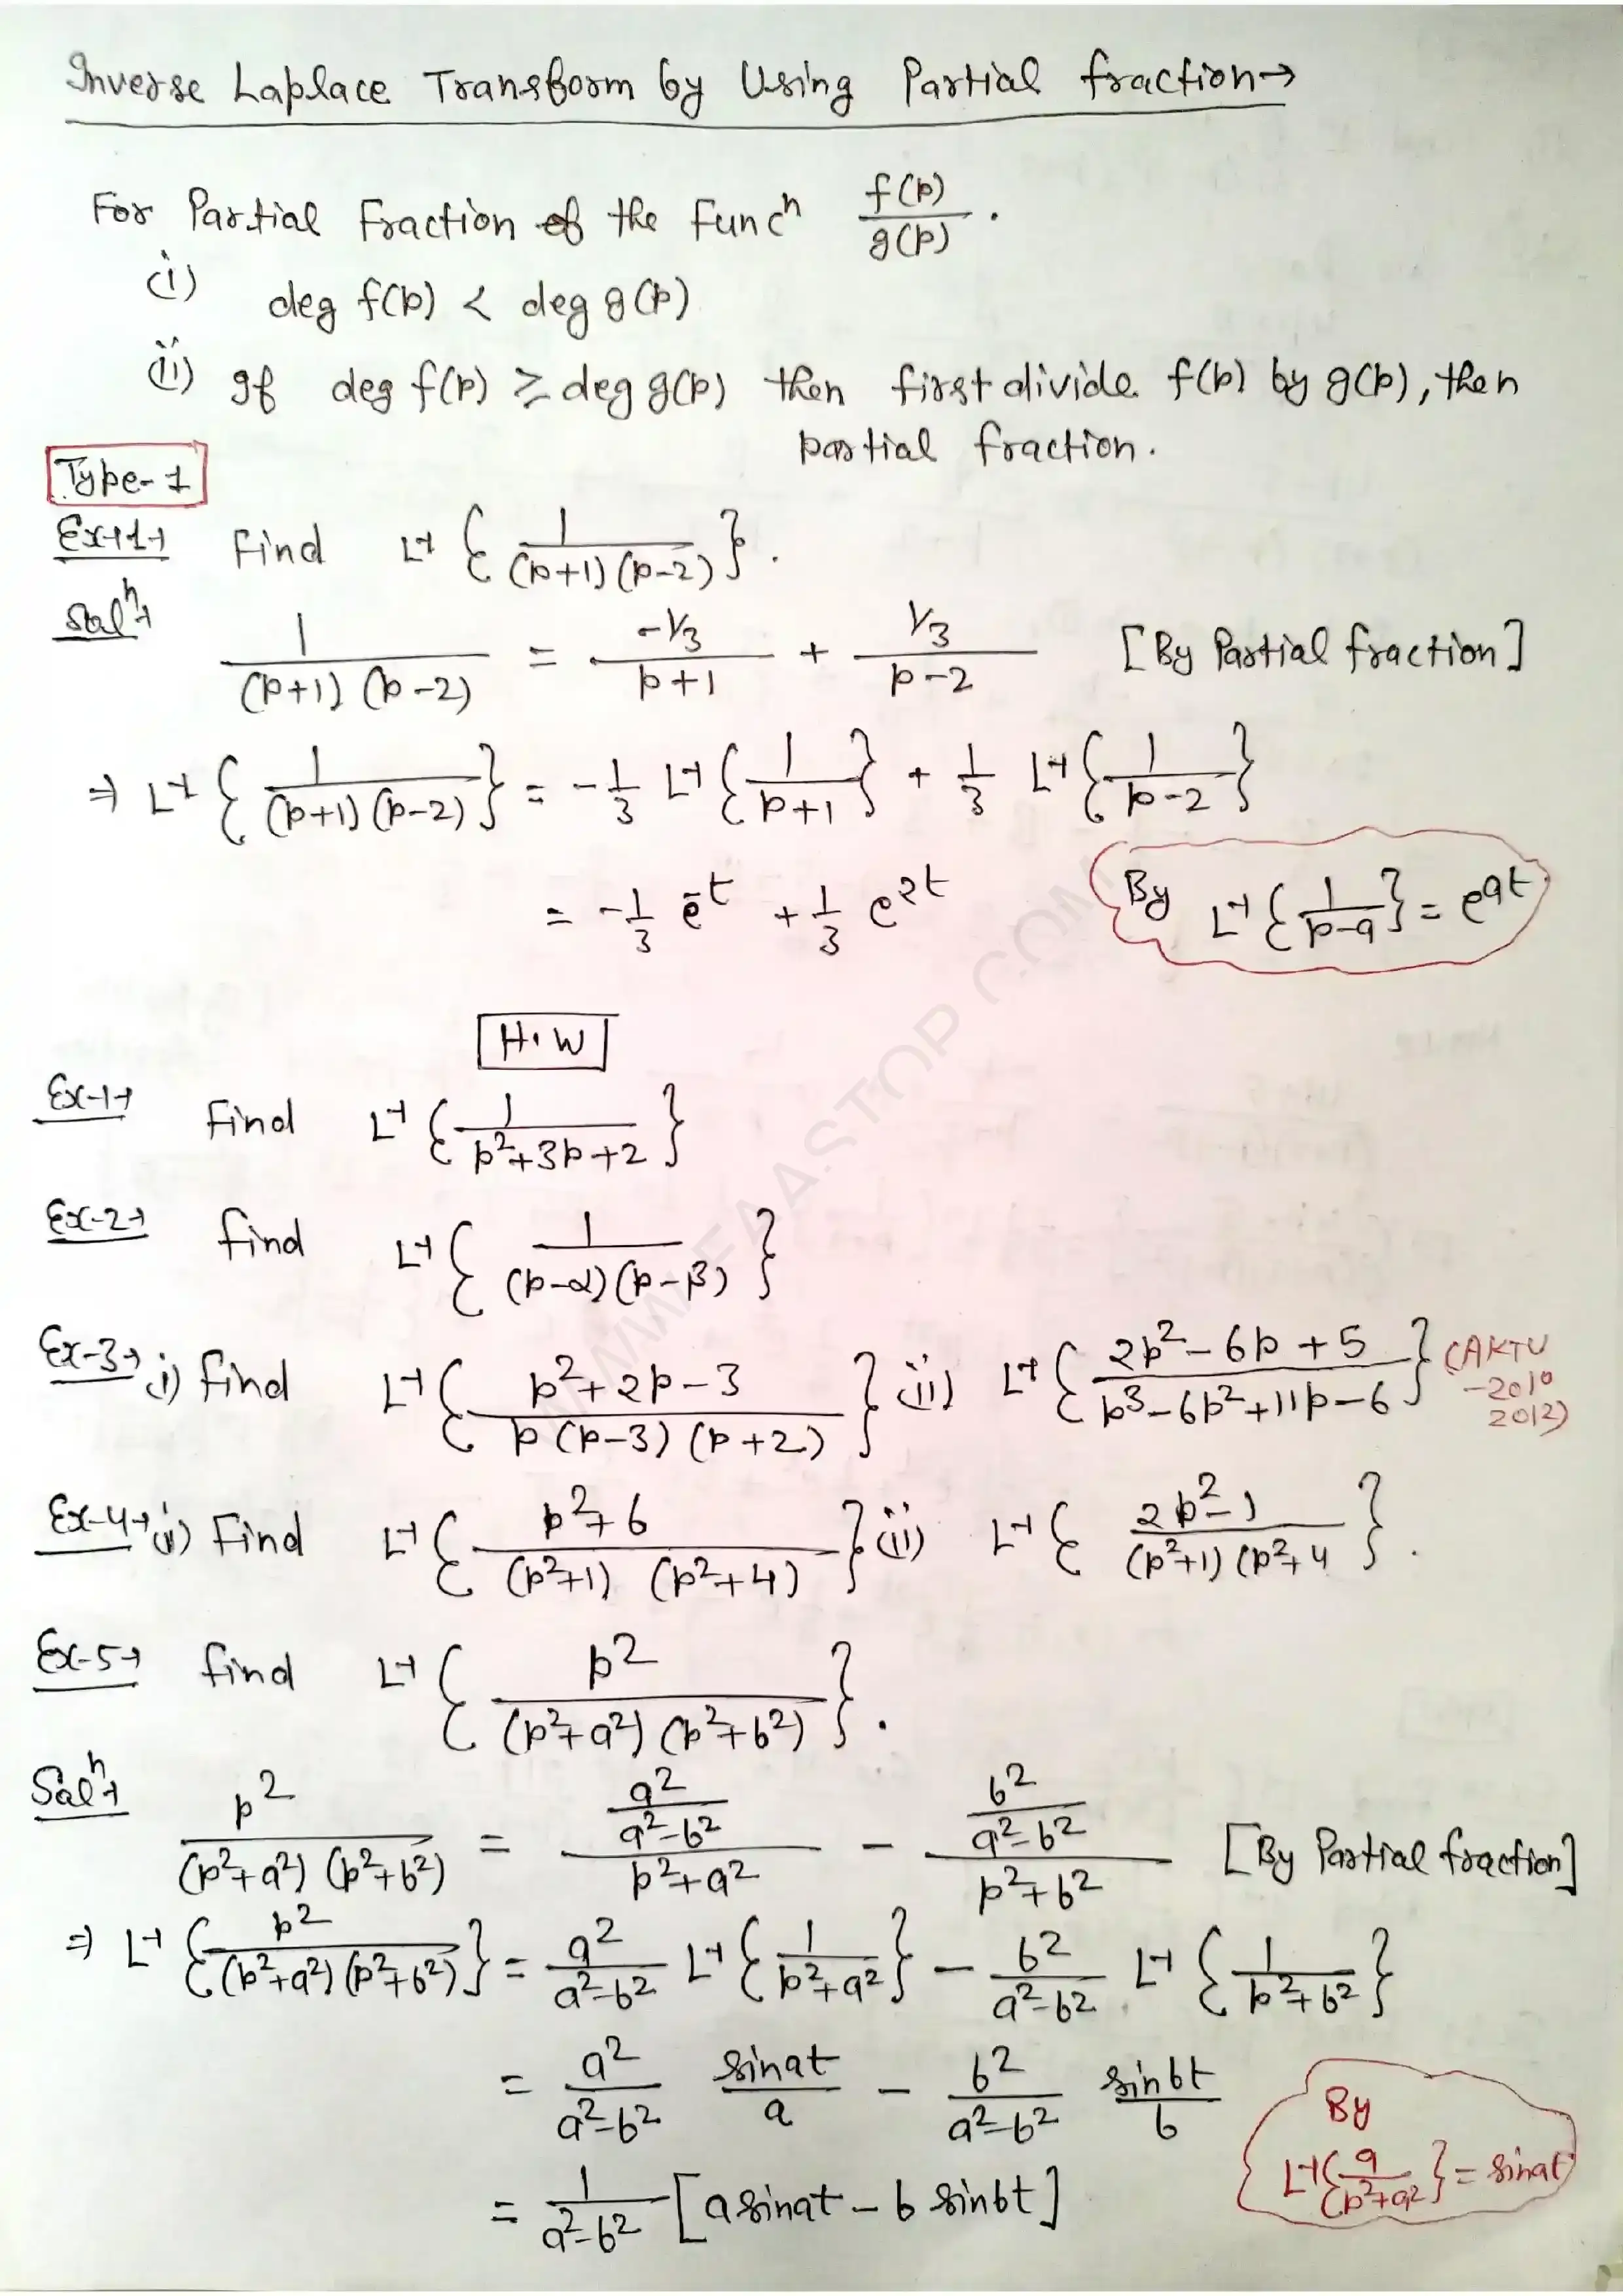 Inverse Laplace Transform by Using Partial fraction→
For Partial Fraction of the Funcⁿ f(p)/g(p) .
(i) deg f(p) < deg g(p)
(ii) If deg f(p) ≥ deg g(p) then first divide f(p) by g(p), then
partial fraction.
Type-1
Ex-1→ Find L⁻¹ { 1/((p+1)(p-2)) } .
Solⁿ→
1/((p+1)(p-2)) = (-1/3)/(p+1) + (1/3)/(p-2) [By Partial fraction]
⇒ L⁻¹ { 1/((p+1)(p-2)) } = -1/3 L⁻¹ { 1/(p+1) } + 1/3 L⁻¹ { 1/(p-2) }
= -1/3 e⁻ᵗ + 1/3 e²ᵗ By L⁻¹ { 1/(p-a) } = eᵃᵗ
H.W
Ex-1→ Find L⁻¹ { 1/(p²+3p+2) }
Ex-2→ find L⁻¹ { 1/((p-α)(p-β)) }
Ex-3→ i) find L⁻¹ { (p²+2p-3)/(p(p-3)(p+2)) } (ii) L⁻¹ { (2p²-6p+5)/(p³-6p²+11p-6) } (AKTU
-2010
2012)
Ex-4→ (i) Find L⁻¹ { (p²+6)/((p²+1)(p²+4)) } (ii) L⁻¹ { (2p²-1)/((p²+1)(p²+4 } .
Ex-5→ find L⁻¹ { p²/((p²+a²)(p²+b²)) } .
Solⁿ→
p²/((p²+a²)(p²+b²)) = (a²/(a²-b²))/(p²+a²) - (b²/(a²-b²))/(p²+b²) [By Partial fraction]
⇒ L⁻¹ { p²/((p²+a²)(p²+b²)) } = a²/(a²-b²) L⁻¹ { 1/(p²+a²) } - b²/(a²-b²) L⁻¹ { 1/(p²+b²) }
= a²/(a²-b²) sinat/a - b²/(a²-b²) sinbt/b
By
L⁻¹ { a/(p²+a²) } = sinat
= 1/(a²-b²) [a sinat - b sinbt]
WWW.FAASTOP.COM